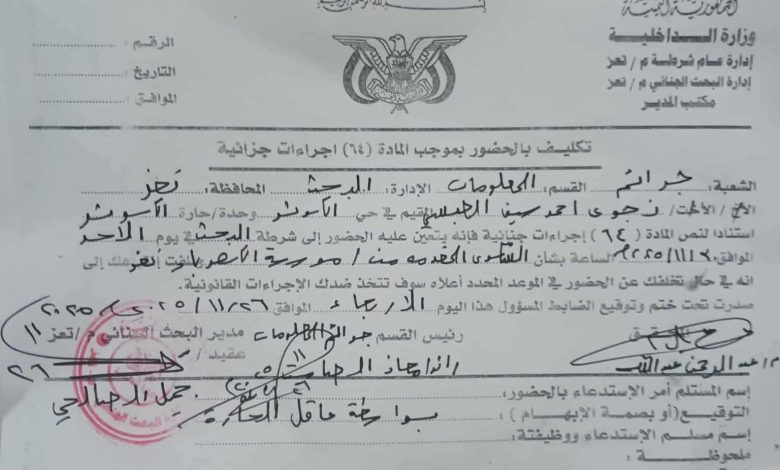 بسم الله الرحمن الرحيم
الجمهورية اليمنية
وزارة الـداخلـيـة
إدارة عام شرطة م / تعز
إدارة البحث الجنائي م / تعز
مكتب المدير
الرقم :
التاريخ :
الموافق :
تكليف بالحضور بموجب المادة (٦٤) اجراءات جزائية
الشعبة : جرائم القسم : المعلومات الإدارة : البحث المحافظة : تعز
الأخ / الأخت / نجوى احمد المقيم في حي وحدة/حارة
استنادا لنص المادة (٦٤) إجراءات جنائية فإنه يتعين عليه الحضور إلى شرطة البحث في يوم الأحد
الموافق الساعة بشأن الشكوى المقدمه من / مؤسسة
انه في حال تخلفك عن الحضور في الموعد المحدد أعلاه سوف تتخذ ضدك الإجراءات القانونية.
صدرت تحت ختم وتوقيع الضابط المسؤول هذا اليوم الاربعاء الموافق ٢٠٢٥/١١/٢٦
رئيس القسم جرائم المعلومات مدير البحث الجنائي م / تعز
عقيد /
رائد / معاذ
عبدالرحمن
جميل
إسم المستلم أمر الإستدعاء بالحضور :
التوقيع (أو بصمة الإبهام) : بواسطة عاقل الحارة
إسم مسلم الإستدعاء ووظيفتة :
ملحوظة :